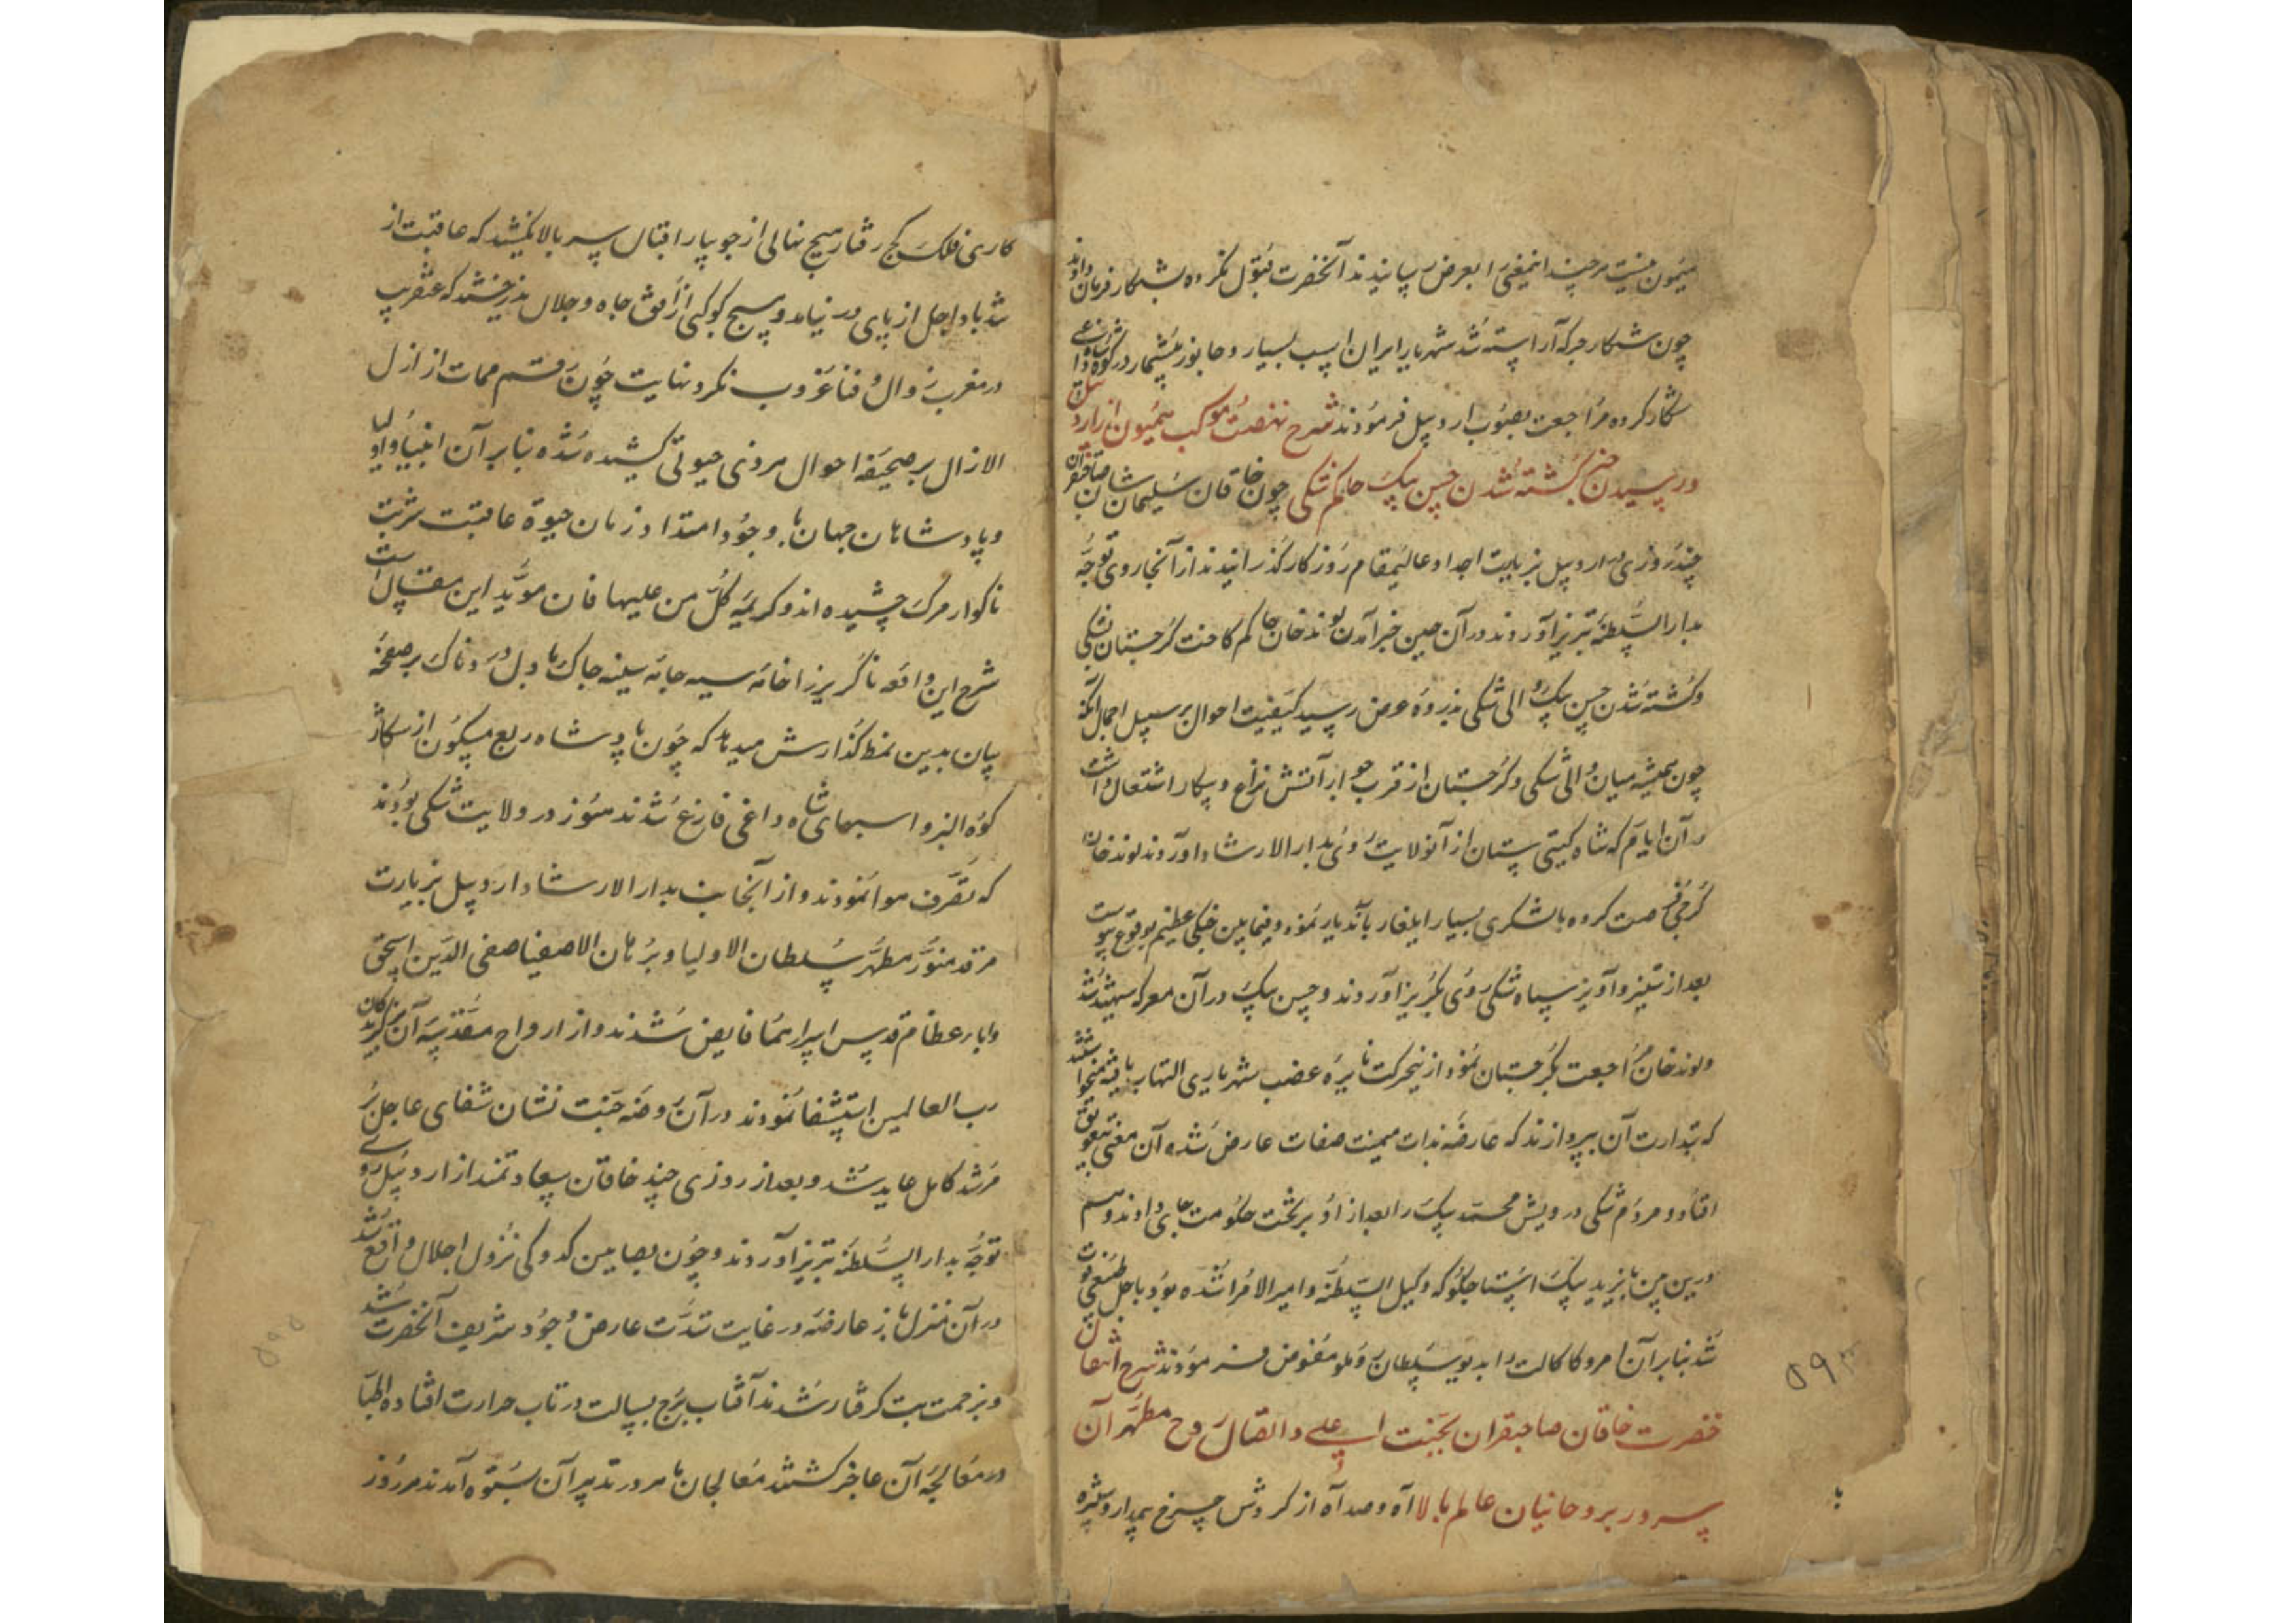 میمون نیست هرچند اینمعنی را بعرض رسانیدند آنحضرت قبول نکرده بشکار فرمان دادند
چون شکار جرکه آراسته شد شهریار ایران اسب بسیار و جانور بیشمار در کوه شاه داغی
شکار کرده مراجعت بصوب اردبیل فرمودند شرح نهضت موکب همیون از اردبیل
و رسیدن خبر کشته شدن حسن بیک حاکم شکی چون خاقان سلیمان شان صاحبقران
چند روزی در اردبیل بزیارت اجداد عالیمقام روزکار کذرانیدند از آنجا روی توجه
بدار السلطنه تبریز آوردند در آن حین خبر آمدن لوند خان حاکم کاخت کرجستان بشکی
و کشته شدن حسن بیک والی شکی بذروه عرض رسید کیفیت احوال بر سبیل اجمال آنکه
چون همیشه میان والی شکی و کرجستان از قرب جوار آتش نزاع و پیکار اشتعال داشت
در آن ایام که شاه کیتی ستان از آنولایت روی بدار الارشاد آوردند لوند خان
کرجی فرصت کرده با لشکری بسیار ایلغار بآندیار نمود و فیمابین جنکی عظیم بوقوع پیوست
بعد از ستیز و آویز سپاه شکی روی بکریز آوردند و حسن بیک در آن معرکه شهید شد
و لوند خان مراجعت بکرجستان نمود از نیحرکت نایره غضب شهریاری التهاب یافته میخواستند
که بتدارت آن بپردازند که عارضه بذات میمنت صفات عارض شده آن معنی بتعویق
افتاد و مردم شکی درویش محمد بیک را بعد از او بر تخت حکومت جای دادند و هم
درین حین بایزید بیک استاجلو که وکیل السلطنه و امیر الامرا شده بود باجل طبیعی فوت
شد بنابر آن امر وکالت را بدیو سلطان روملو مفوض فرمودند شرح انتقال
حضرت خاقان صاحبقران بجنت اعلی و اتصال روح مطهر آن
سرور بروحانیان عالم بالا آه و صد آه از کردش چرخ بیمدار و ستیزه
کاری فلک کج رفتار هیچ نهالی از جویبار اقبال سر بالا نکشید که عاقبت از
تند باد اجل از پای در نیامد و هیچ کوکبی از افق جاه و جلال ندرخشید که عنقریب
در مغرب زوال و فنا غروب نکرد نهایت چون رقم ممات از ازل
الازال بر صحیفه احوال هر ذی حیوتی کشیده شده بنابر آن انبیا و اولیا
و پادشاهان جهان با وجود امتداد زمان حیوة عاقبت شربت
ناکوار مرک چشیده اند و کریمه کل من علیها فان مؤید این مقال است
شرح این واقعه ناکریز را خامه سیه جامه سینه چاک با دل دردناک بر صفحه
بیان بدین نمط کذارش میدهد که چون پادشاه ربع مسکون از شکار
کوه البرز و اسبهای شاه داغی فارغ شدند هنوز در ولایت شکی بودند
که تصرف هوا نمودند و از آنجانب بدار الارشاد اردبیل بزیارت
مرقد منور مطهر سلطان الاولیا و برهان الاصفیا صفی الدین اسحق
و ابار عظام قدس اسرارهما فایض شدند و از ارواح مقدسه آن برکزیدکان
رب العالمین استشفا نمودند در آن روضه جنت نشان شفای عاجل بر
مرشد کامل عاید شد و بعد از روزی چند خاقان سعادتمند از اردبیل روی
توجه بدار السلطنه تبریز آوردند و چون بصاین کدوکی نزول اجلال واقع شد
در آن منزل باز عارضه در غایت شدت عارض وجود شریف آنحضرت شد
و بزحمت تب کرفتار شدند آفتاب برج بسالت در تاب حرارت افتاده اطبا
در معالجه آن عاجز کشتند معالجان ماهر در تدبیر آن بستوه آمدند هر روز
با
۵۹۳
۵۹۵